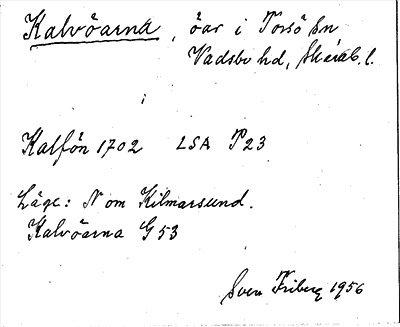 Kalvöarna, öar i Torsö sn
Vadsbo hd, Skarab. l.
i
Kalfön 1702 LSA P23
Läge: N om Kilmarsund.
Kalvöarna G53
Sven Friberg 1956